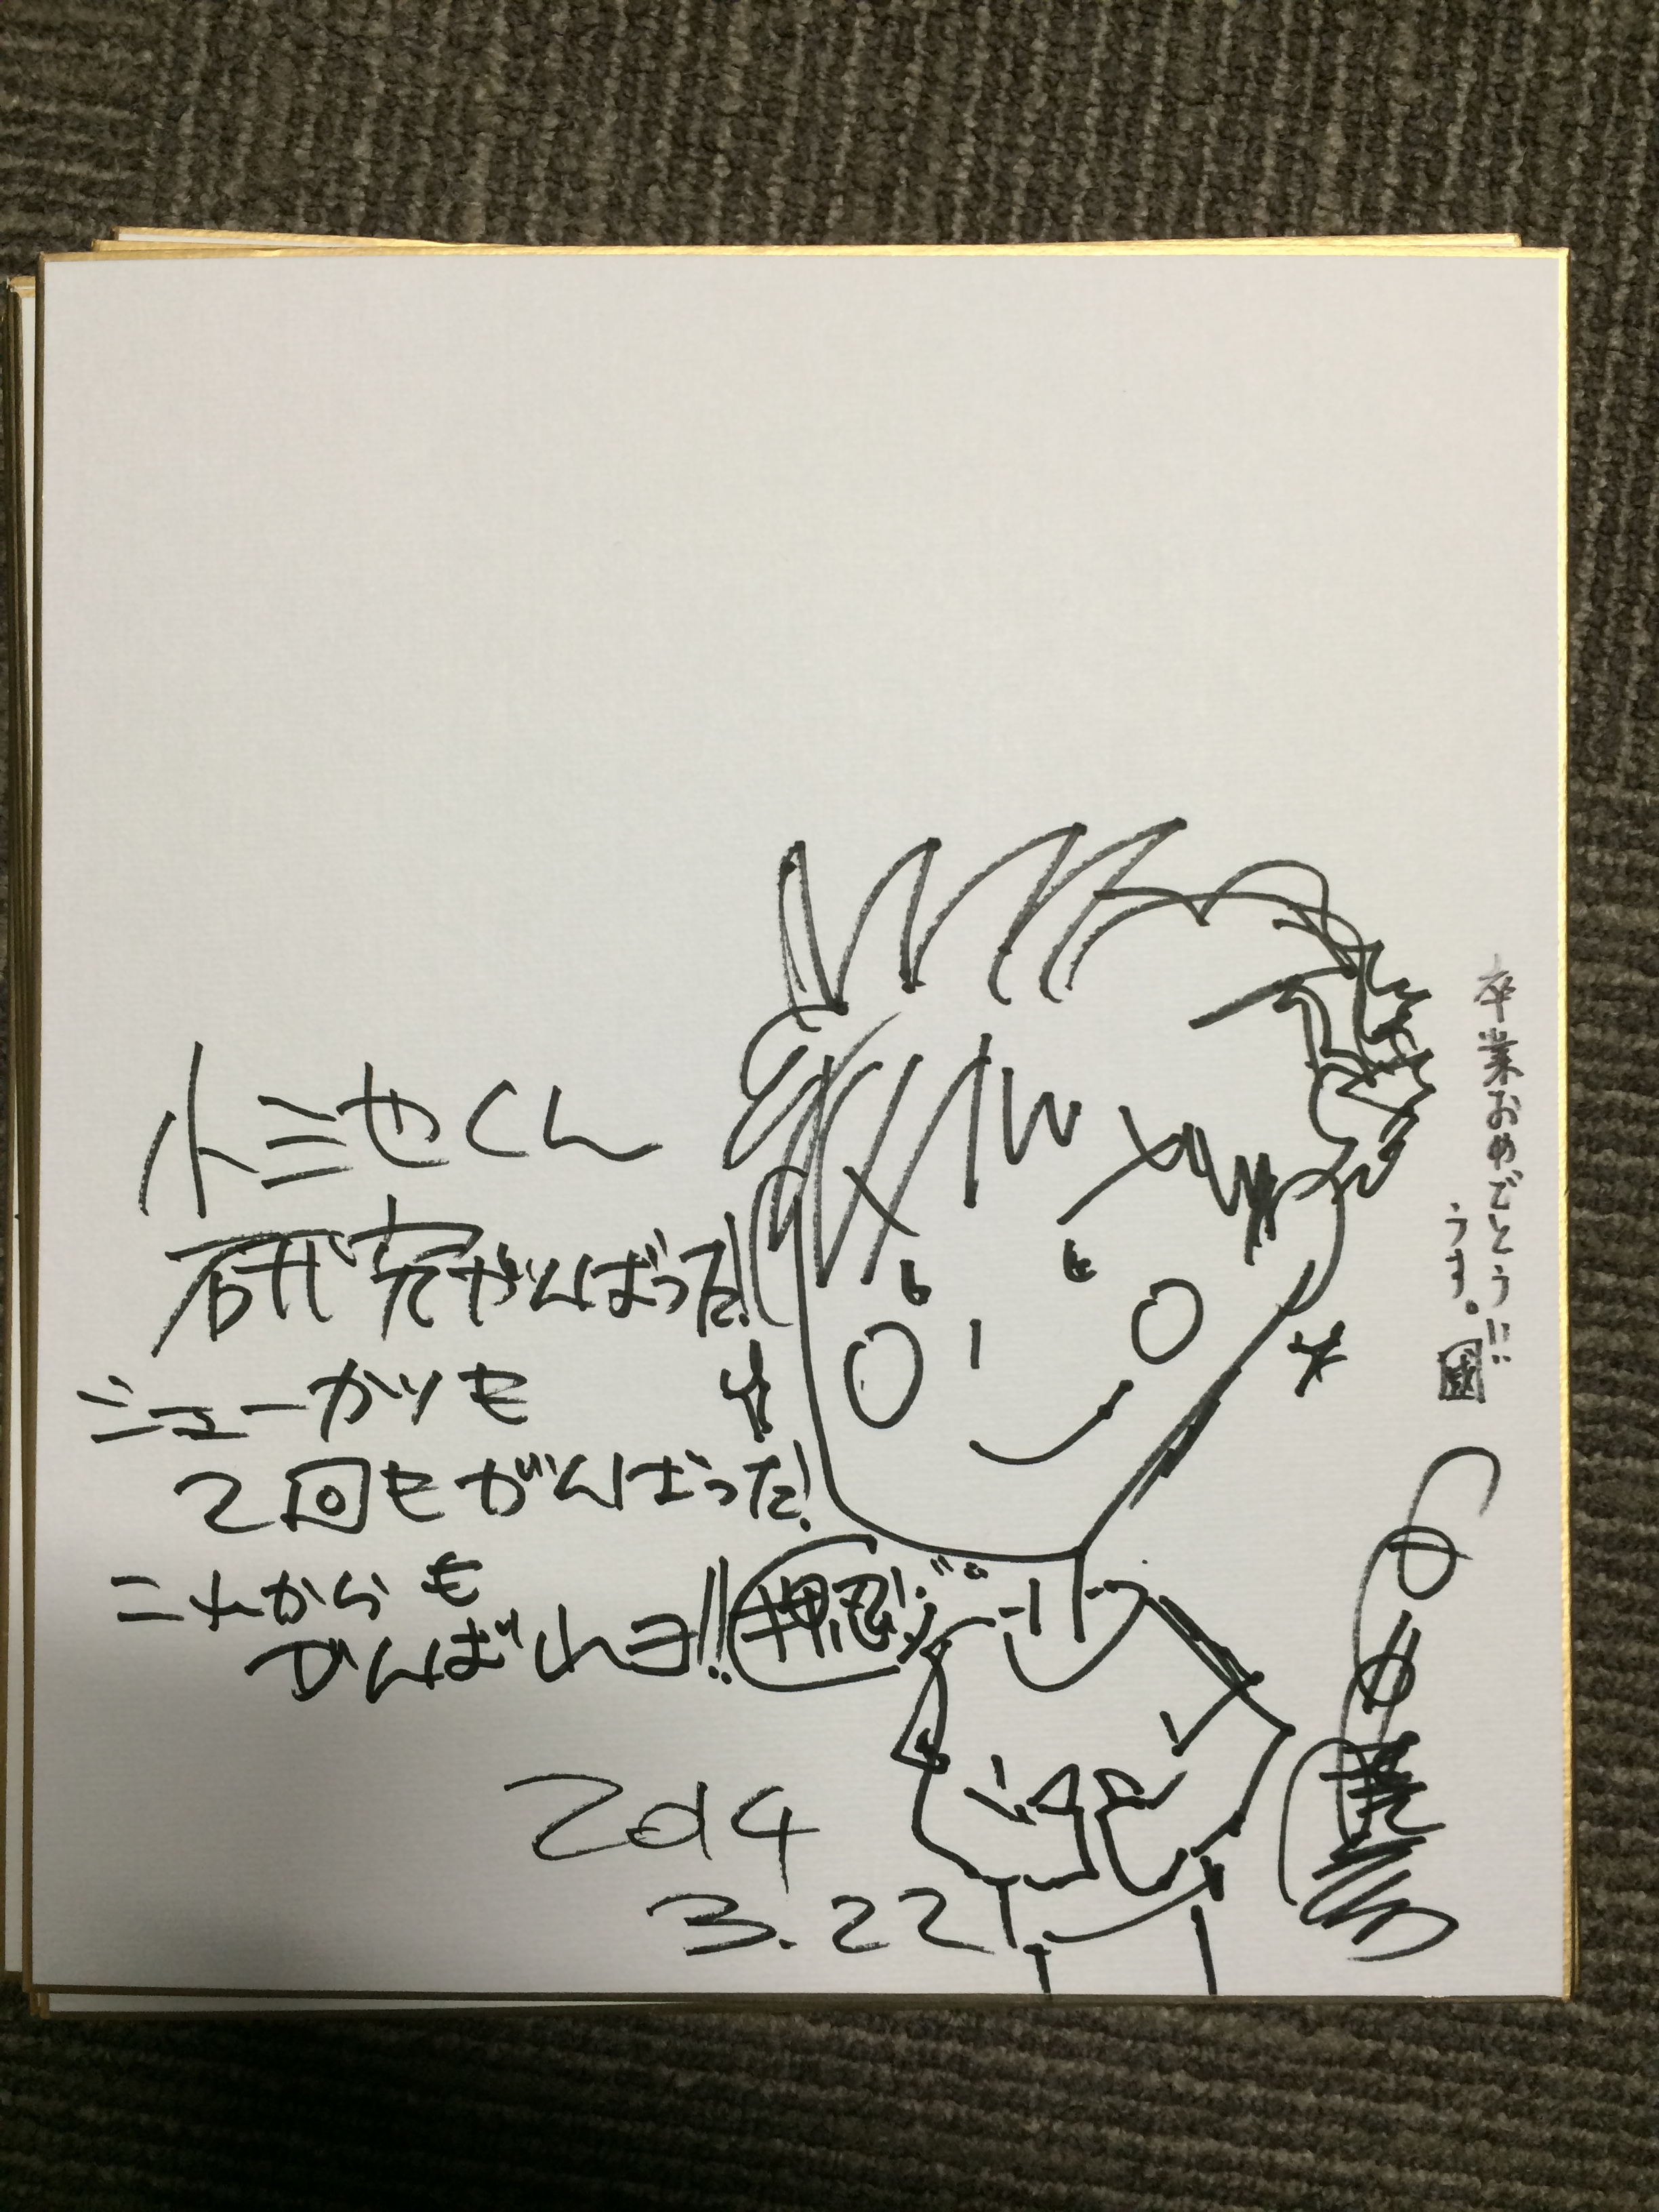 小三也くん
研究がんばった!
シューカツも
2回もがんばった!
これからも
がんばれヨ!!
押忍!
2014
3.22
卒業おめでとうござい
ます。